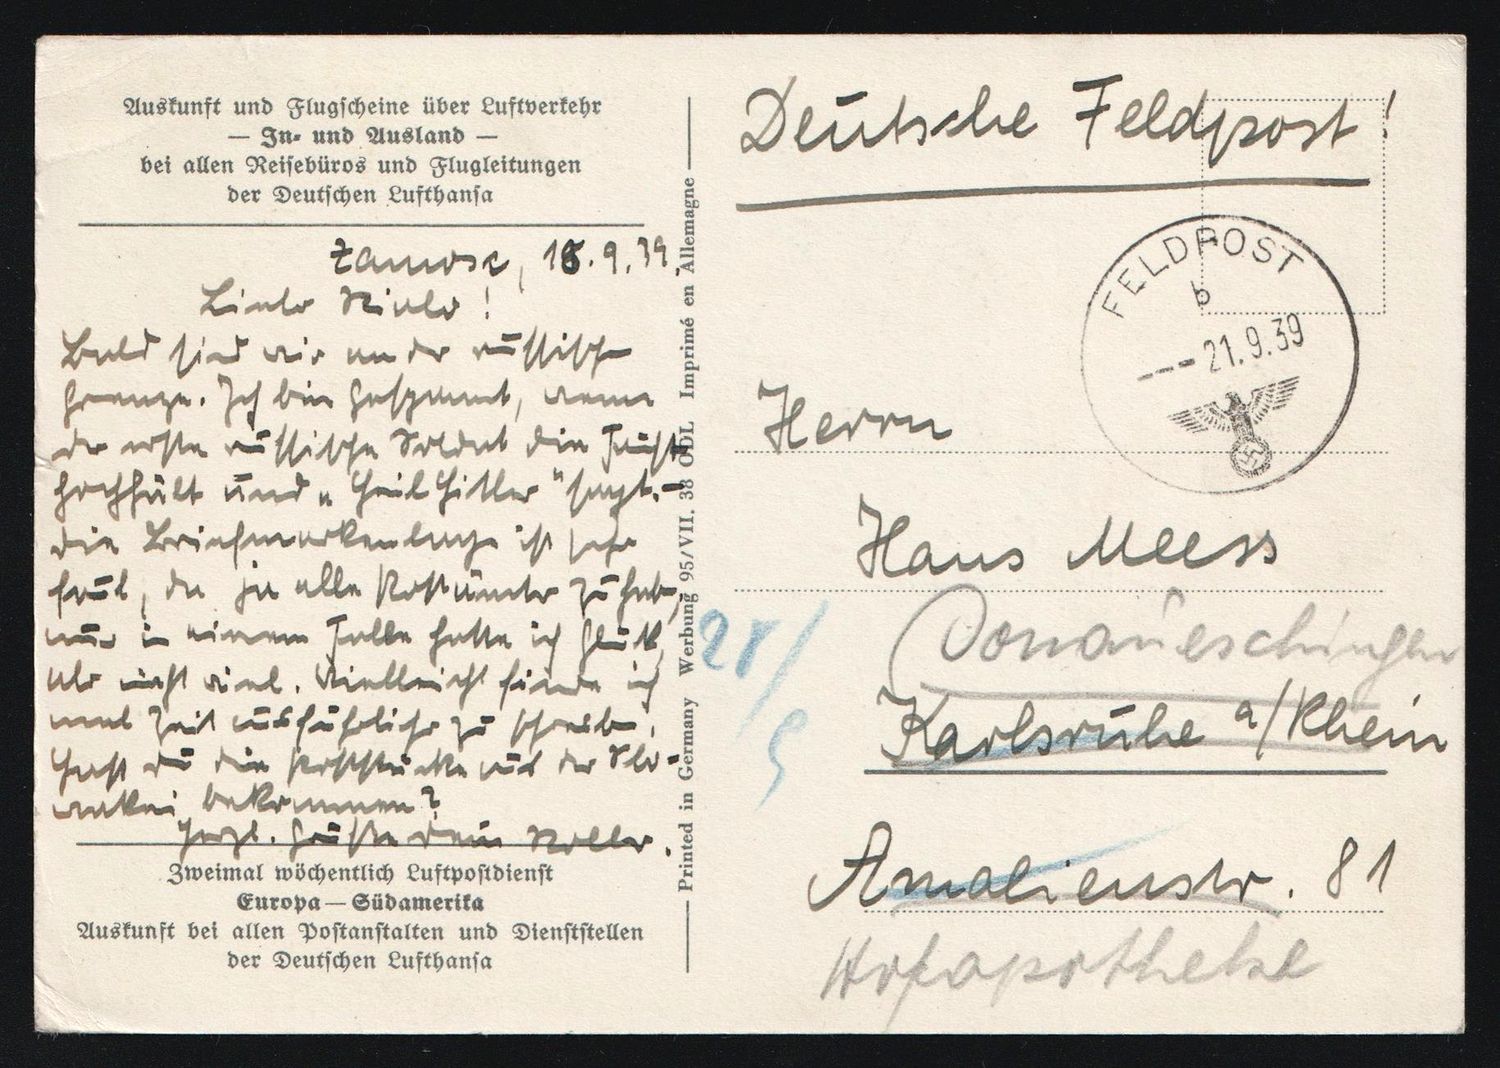 Auskunft und Flugscheine über Luftverkehr
— In- und Ausland —
bei allen Reisebüros und Flugleitungen
der Deutschen Lufthansa
Zamosc, 18.9.39.
Lieber
Bald sind wir an der russische
Grenze. Ich bin gespannt, wenn
der erste russische Soldat die Faust
hochhält und „Heil Hitler" sagt.-
Die Briefmarkenlage ist sehr
faul, da ja alle Postämter zu haben,
nur in einem Falle hatte ich Glück,
aber nicht viel. Vielleicht finde ich
mal Zeit ausführlicher zu schreiben.
Hast du die Poststücke aus der Slo-
wakei bekommen?
Herzl. Grüße dein
Zweimal wöchentlich Luftpostdienst
Europa — Südamerika
Auskunft bei allen Postanstalten und Dienststellen
der Deutschen Lufthansa
Printed in Germany Werbung 95/VII. 38 ODL Imprimé en Allemagne
Deutsche Feldpost!
FELDPOST
b
--- 21.9.39
Herrn
Hans Meess
Donaueschingen
28/9
Karlsruhe a/Rhein
Amalienstr. 81
Hofapotheke